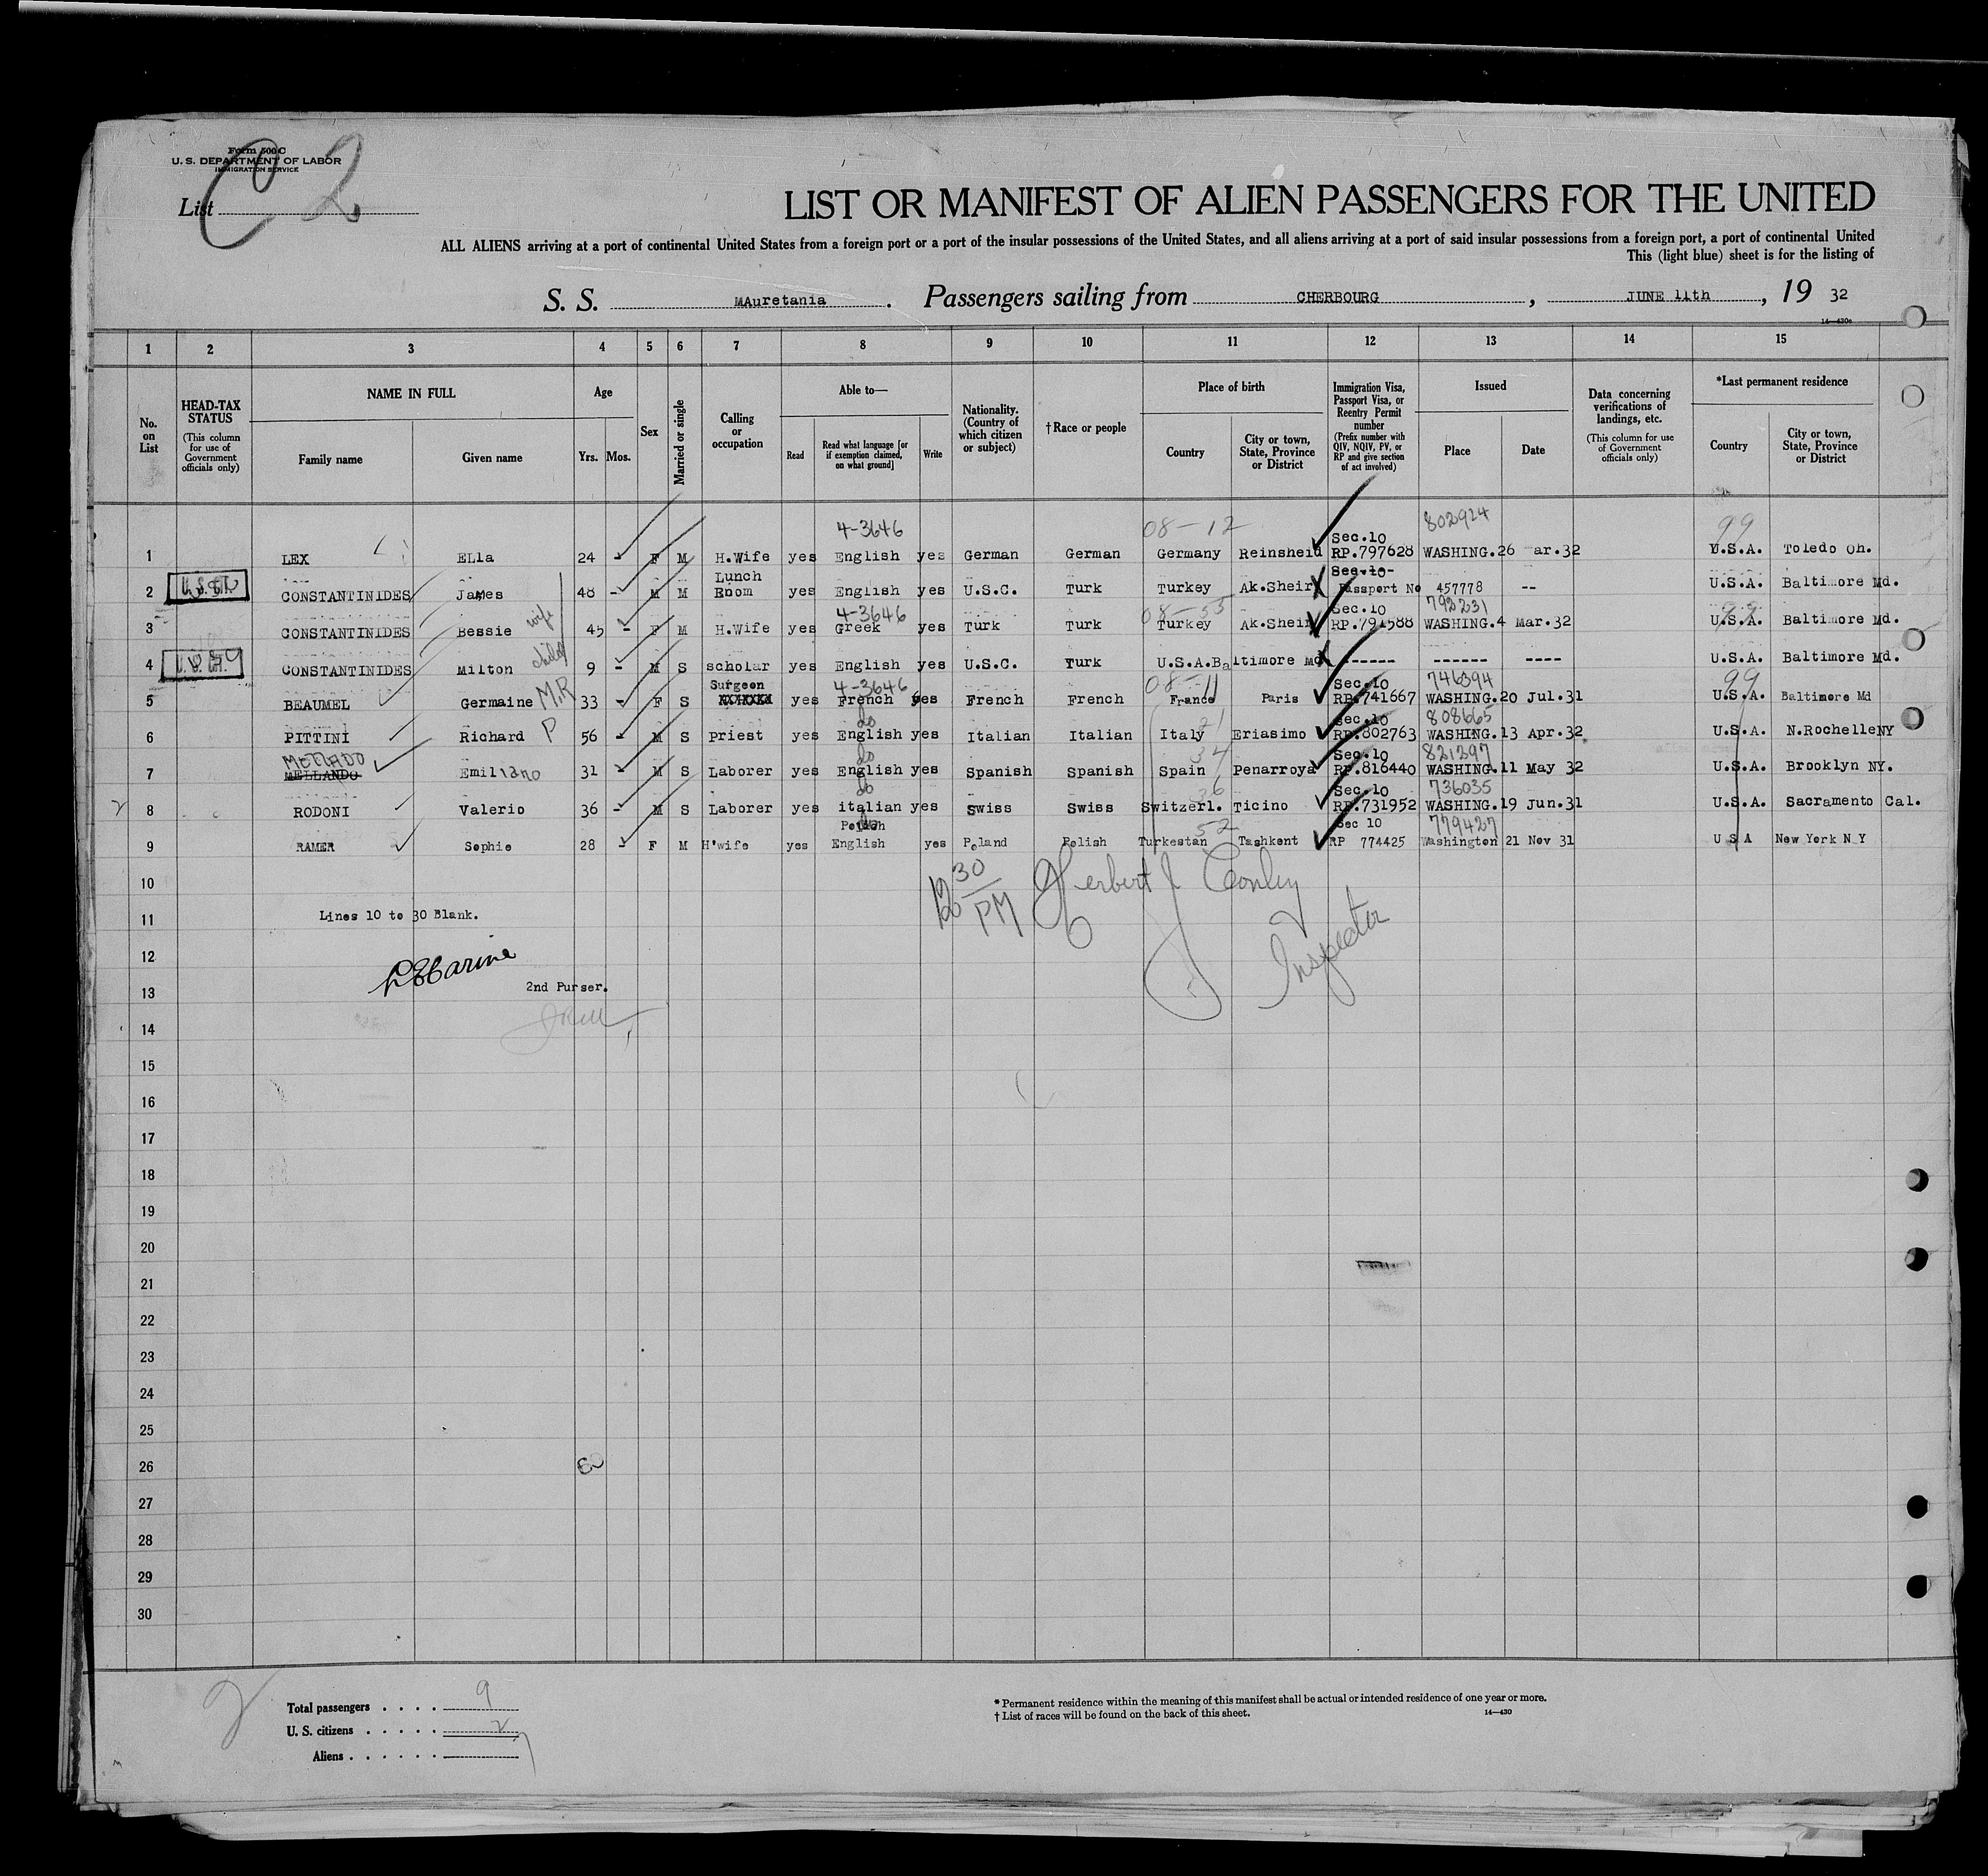 Form 500 C
U. S. DEPARTMENT OF LABOR
IMMIGRATION SERVICE
List C 2
LIST OR MANIFEST OF ALIEN PASSENGERS FOR THE UNITED
ALL ALIENS arriving at a port of continental United States from a foreign port or a port of the insular possessions of the United States, and all aliens arriving at a port of said insular possessions from a foreign port, a port of continental United
This (light blue) sheet is for the listing of
S. S. MAuretania . Passengers sailing from CHERBOURG , JUNE 11th , 19 32
14—430a
1 2 3 4 5 6 7 8 9 10 11 12 13 14 15
No. on List
HEAD-TAX STATUS (This column for use of Government officials only)
NAME IN FULL Family name Given name
Age Yrs. Mos.
Sex
Married or single
Calling or occupation
Able to— Read Read what language [or if exemption claimed, on what ground] Write
Nationality. (Country of which citizen or subject)
†Race or people
Place of birth Country City or town, State, Province or District
Immigration Visa, Passport Visa, or Reentry Permit number (Prefix number with QIV, NQIV, PV, or RP and give section of act involved)
Issued Place Date
Data concerning verifications of landings, etc. (This column for use of Government officials only)
*Last permanent residence Country City or town, State, Province or District
4-3646 08-12 Sec.10 802924 99
1 LEX ELla 24 - F M H.Wife yes English yes German German Germany Reinsheid RP.797628 WASHING. 26 mar.32 U.S.A. Toledo Oh.
Lunch Sec.10
2 CONSTANTINIDES James 48 - M M Room yes English yes U.S.C. Turk Turkey Ak.Sheir Passport No 457778 -- U.S.A. Baltimore Md.
wife 4-3646 08-55 Sec.10 792231 99
3 CONSTANTINIDES Bessie 45 - F M H.Wife yes Greek yes Turk Turk Turkey Ak.Sheir RP.791588 WASHING. 4 Mar.32 U.S.A. Baltimore Md.
child
4 CONSTANTINIDES Milton 9 - M S scholar yes English yes U.S.C. Turk U.S.A. Baltimore Md ------ ------ ---- U.S.A. Baltimore Md.
Surgeon 4-3646 08-11 Sec.10 746394 99
5 BEAUMEL Germaine MR 33 - F S yes French yes French French France Paris RP.741667 WASHING. 20 Jul.31 U.S.A. Baltimore Md
do 21 Sec.10 808665
6 PITTINI Richard P 56 - M S Priest yes English yes Italian Italian Italy Eriasimo RP.802763 WASHING. 13 Apr.32 U.S.A. N.Rochelle NY
MELLADO do 34 Sec.10 821297
7 MELLANDO Emiliano 31 - M S Laborer yes English yes Spanish Spanish Spain Penarroya RP.816440 WASHING. 11 May 32 U.S.A. Brooklyn NY.
do 36 Sec.10 736035
8 RODONI Valerio 36 - M S Laborer yes italian yes Swiss Swiss Switzerl. Ticino RP.731952 WASHING. 19 Jun.31 U.S.A. Sacramento Cal.
Polish do 52 Sec 10 779427
9 RAMER Sophie 28 F M H'wife yes English yes Poland Polish Turkestan Tashkent RP 774425 Washington 21 Nov 31 U S A New York N Y
10
30 PM Herbert J Conley
11 Lines 10 to 30 Blank.
Inspector
12
13 2nd Purser.
14
15
16
17
18
19
20
21
22
23
24
25
26
27
28
29
30
Total passengers . . . . 9
U. S. citizens . . . . . 2
Aliens . . . . . . 7
* Permanent residence within the meaning of this manifest shall be actual or intended residence of one year or more.
† List of races will be found on the back of this sheet. 14—430